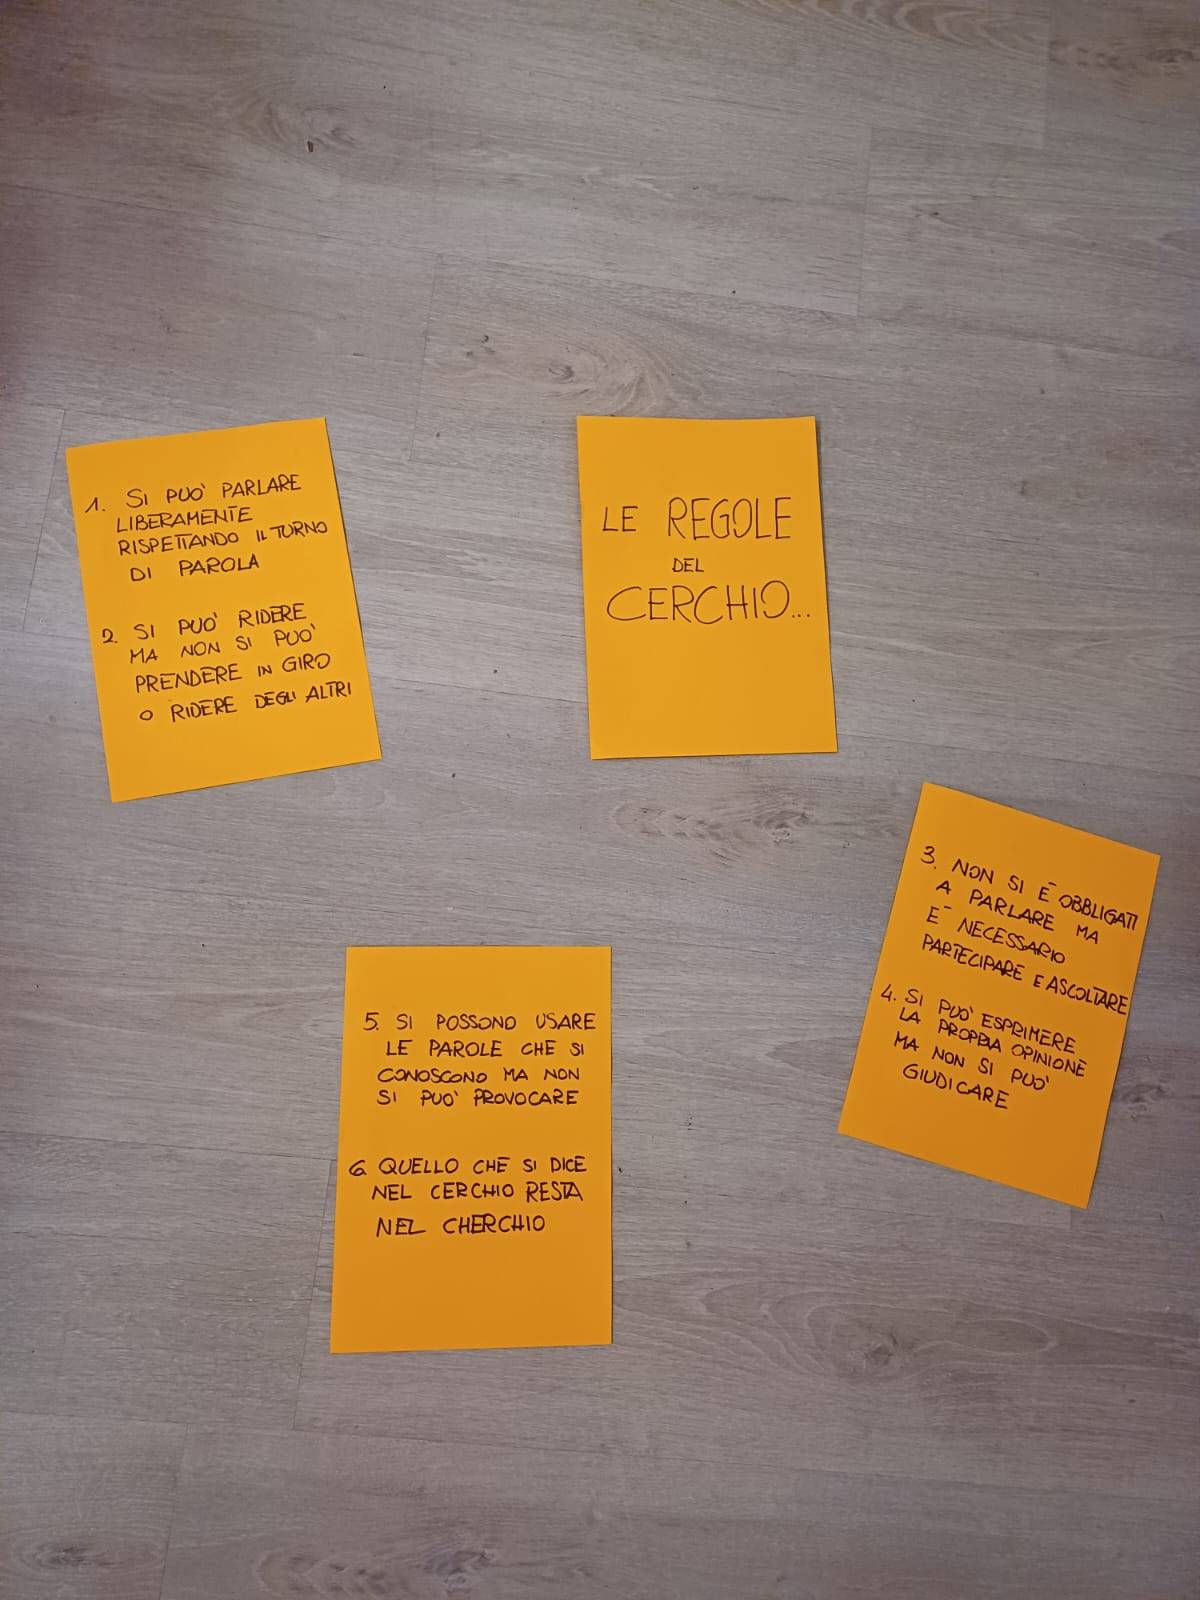 LE REGOLE
DEL
CERCHIO...
1. SI PUO' PARLARE
LIBERAMENTE
RISPETTANDO IL TURNO
DI PAROLA
2. SI PUO' RIDERE
MA NON SI PUO'
PRENDERE IN GIRO
O RIDERE DEGLI ALTRI
3. NON SI È OBBLIGATI
A PARLARE MA
È NECESSARIO
PARTECIPARE E ASCOLTARE
4. SI PUO' ESPRIMERE
LA PROPRIA OPINIONE
MA NON SI PUO'
GIUDICARE
5. SI POSSONO USARE
LE PAROLE CHE SI
CONOSCONO MA NON
SI PUO' PROVOCARE
6. QUELLO CHE SI DICE
NEL CERCHIO RESTA
NEL CHERCHIO